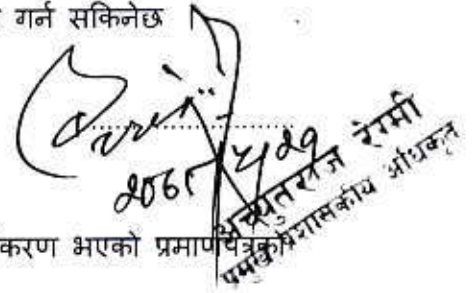 गर्न सकिनेछ
अच्युतराज रेग्मी
प्रमुख प्रशासकीय अधिकृत
करण भएको प्रमाणपत्रको